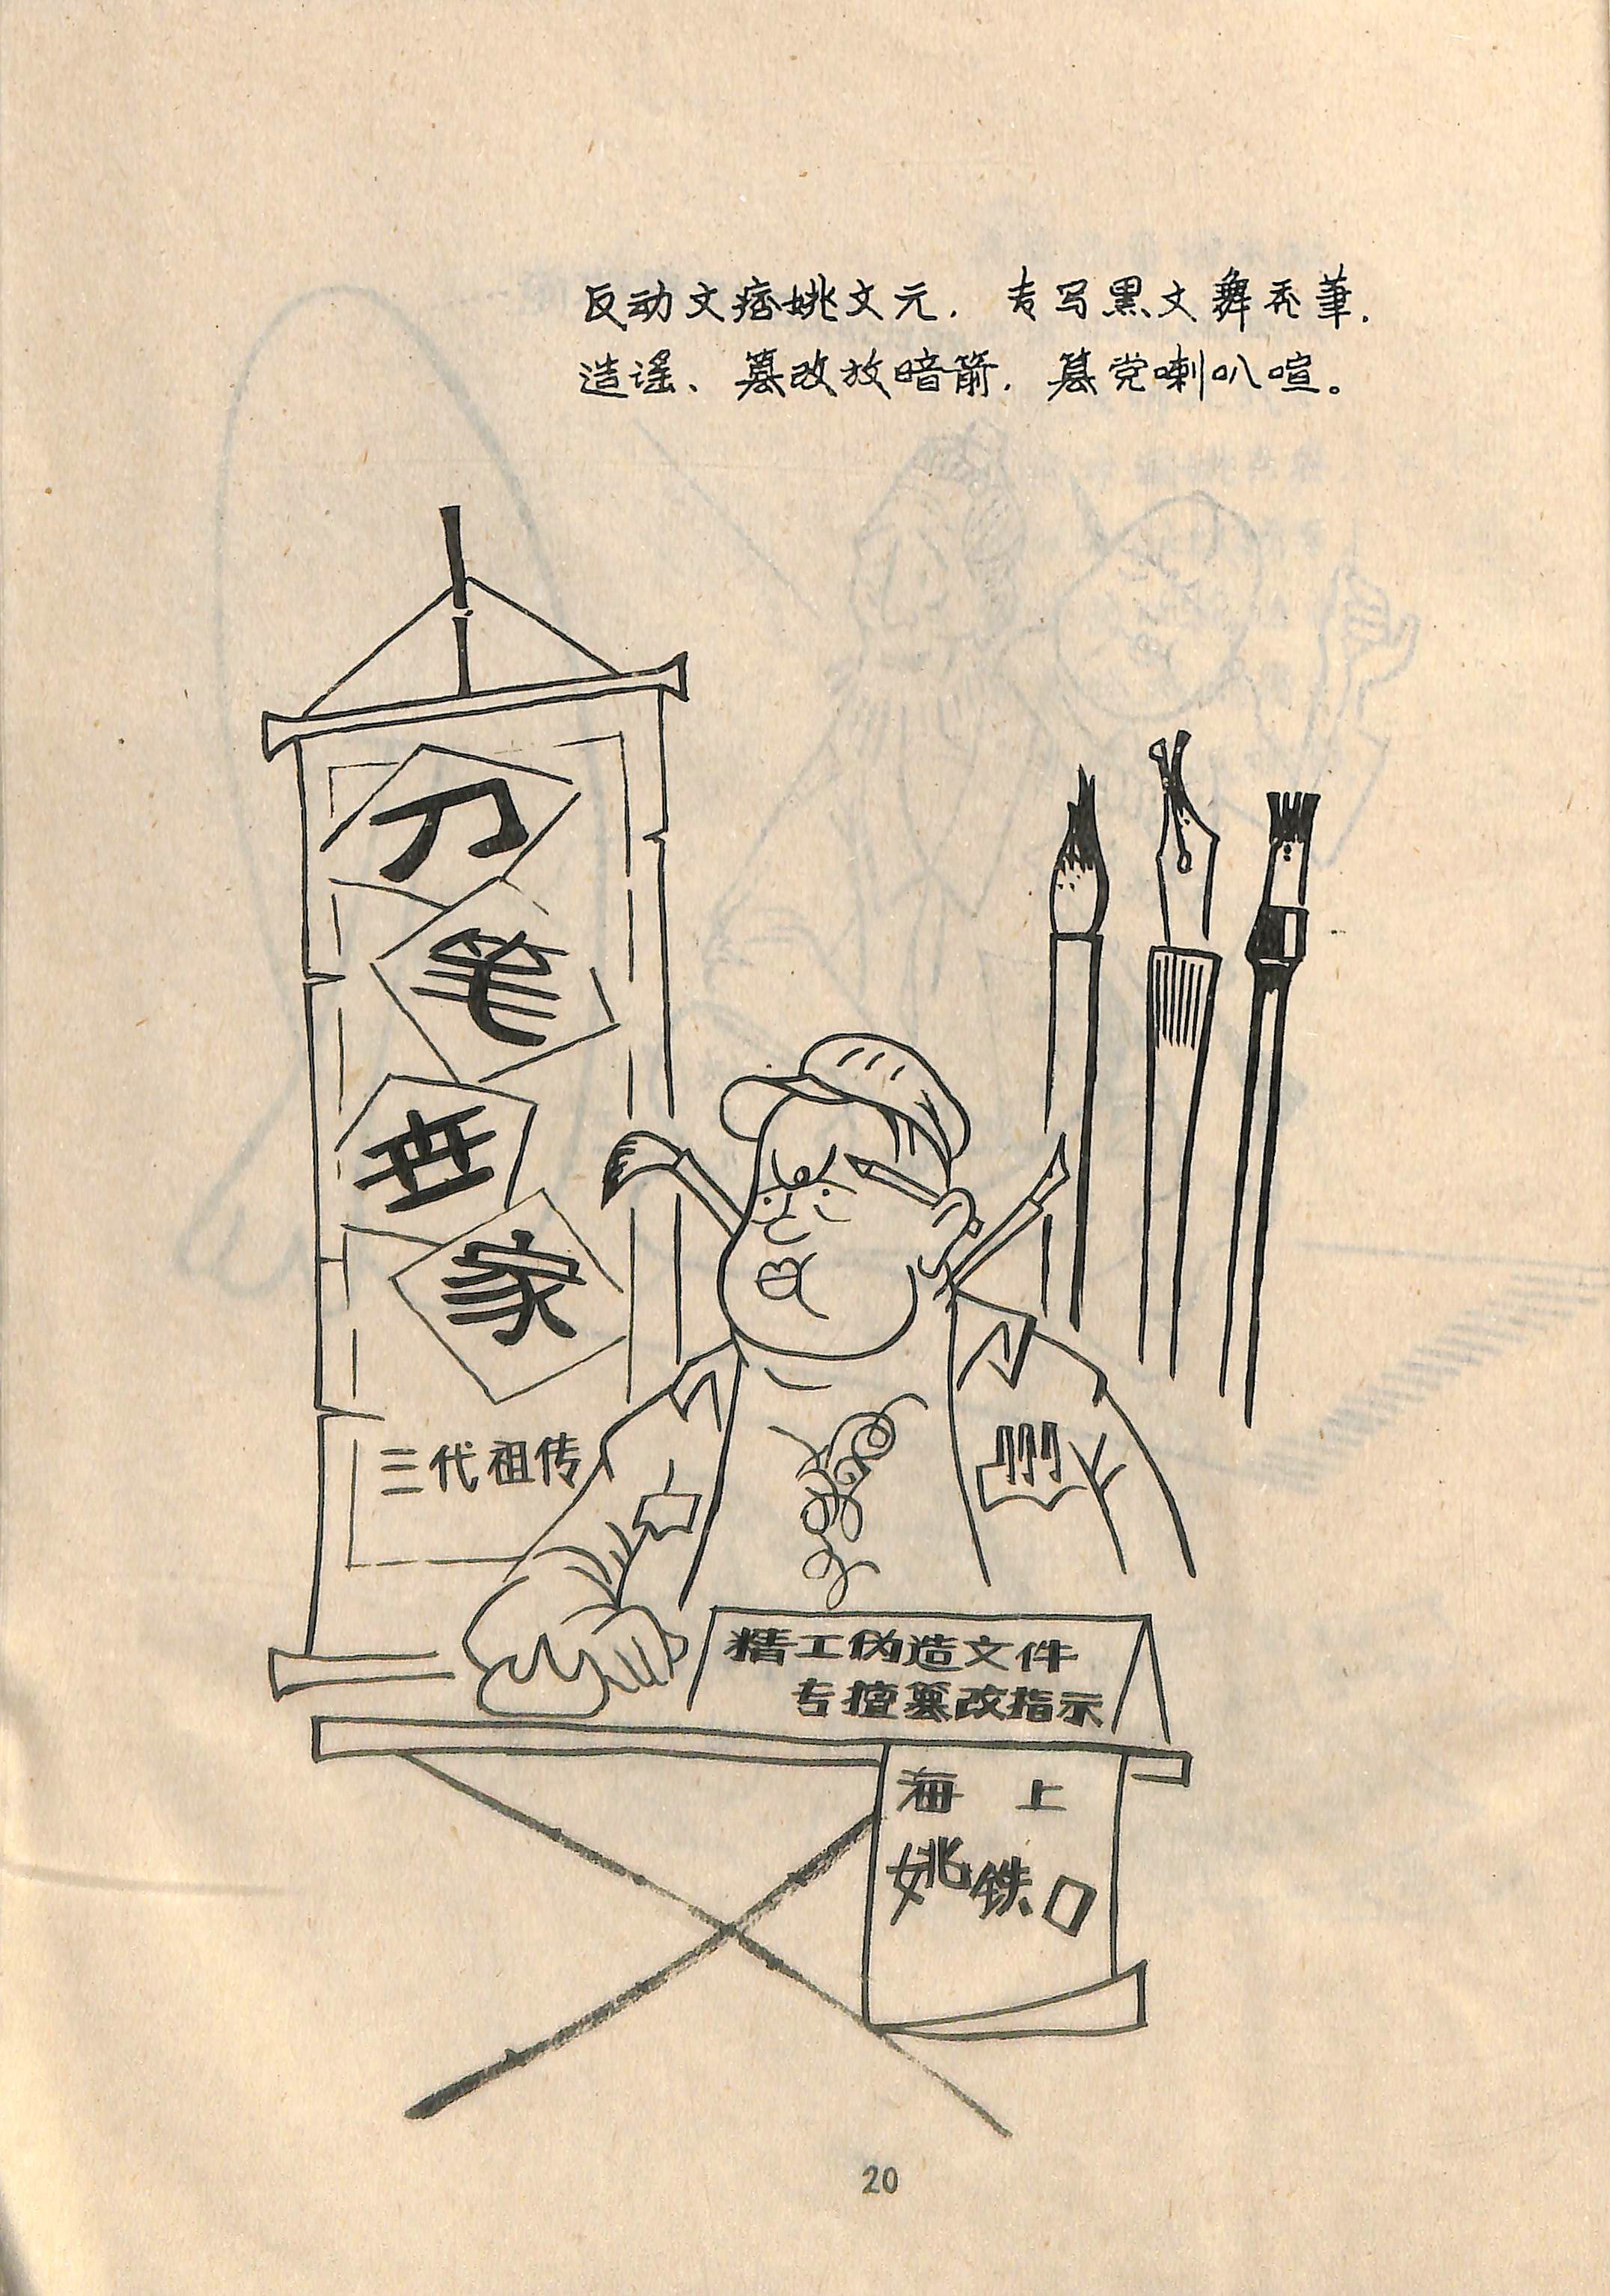 反动文痞姚文元，专写黑文舞秃筆，
造谣、篡改放暗箭，篡党喇叭喧。
刀
笔
世
家
三代祖传
精工伪造文件
专擅篡改指示
海上
姚铁口
20